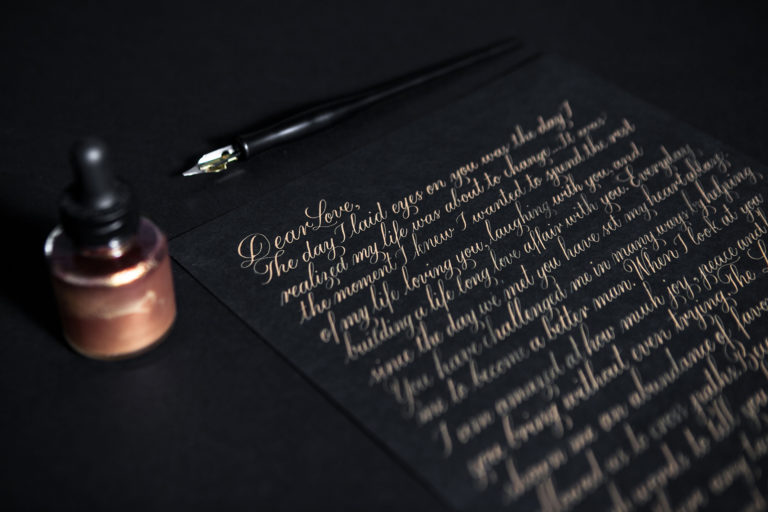 Dear Love,
The day I laid eyes on you was the day I
realized my life was about to change. It was
the moment I knew I wanted to spend the rest
of my life loving you, laughing with you and
building a life long love affair with you. Everyday
since the day we met you have set my heart ablaze.
You have challenged me in many ways by helping
me to become a better man. When I look at you
I am amazed at how much joy, peace and
you bring without even trying. The
me an abundance of favor
allowed us to cross paths.
words to tell you